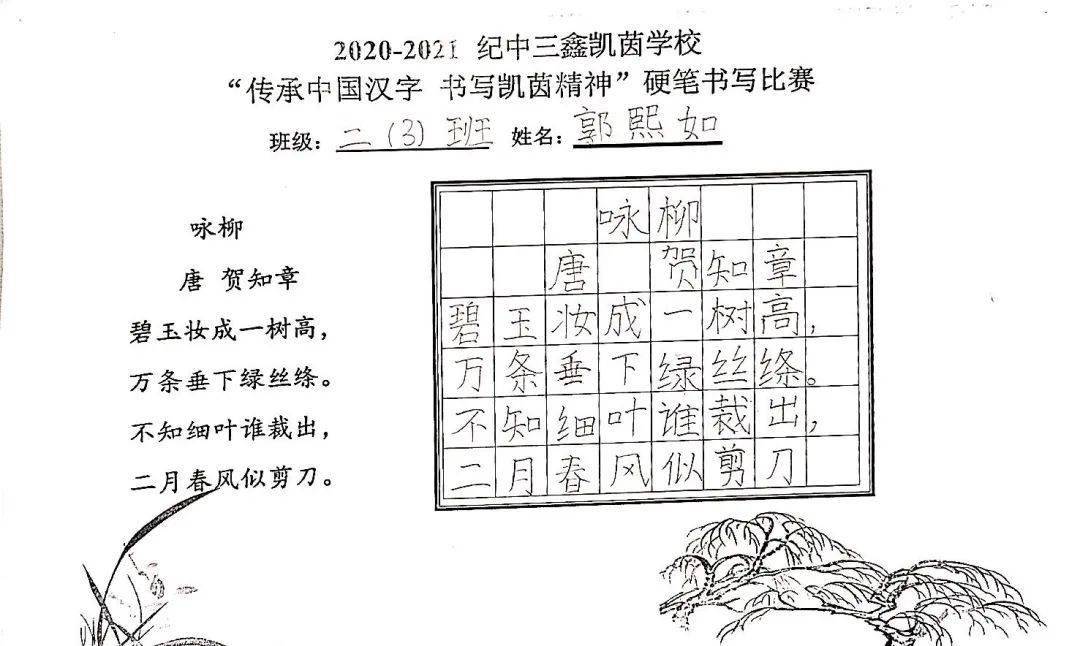 2020-2021 纪中三鑫凯茵学校
“传承中国汉字 书写凯茵精神”硬笔书写比赛
班级：二（3）班 姓名：郭熙如
咏柳
唐 贺知章
碧玉妆成一树高，
万条垂下绿丝绦。
不知细叶谁裁出，
二月春风似剪刀。
咏柳
唐 贺知章
碧玉妆成一树高，
万条垂下绿丝绦。
不知细叶谁裁出，
二月春风似剪刀